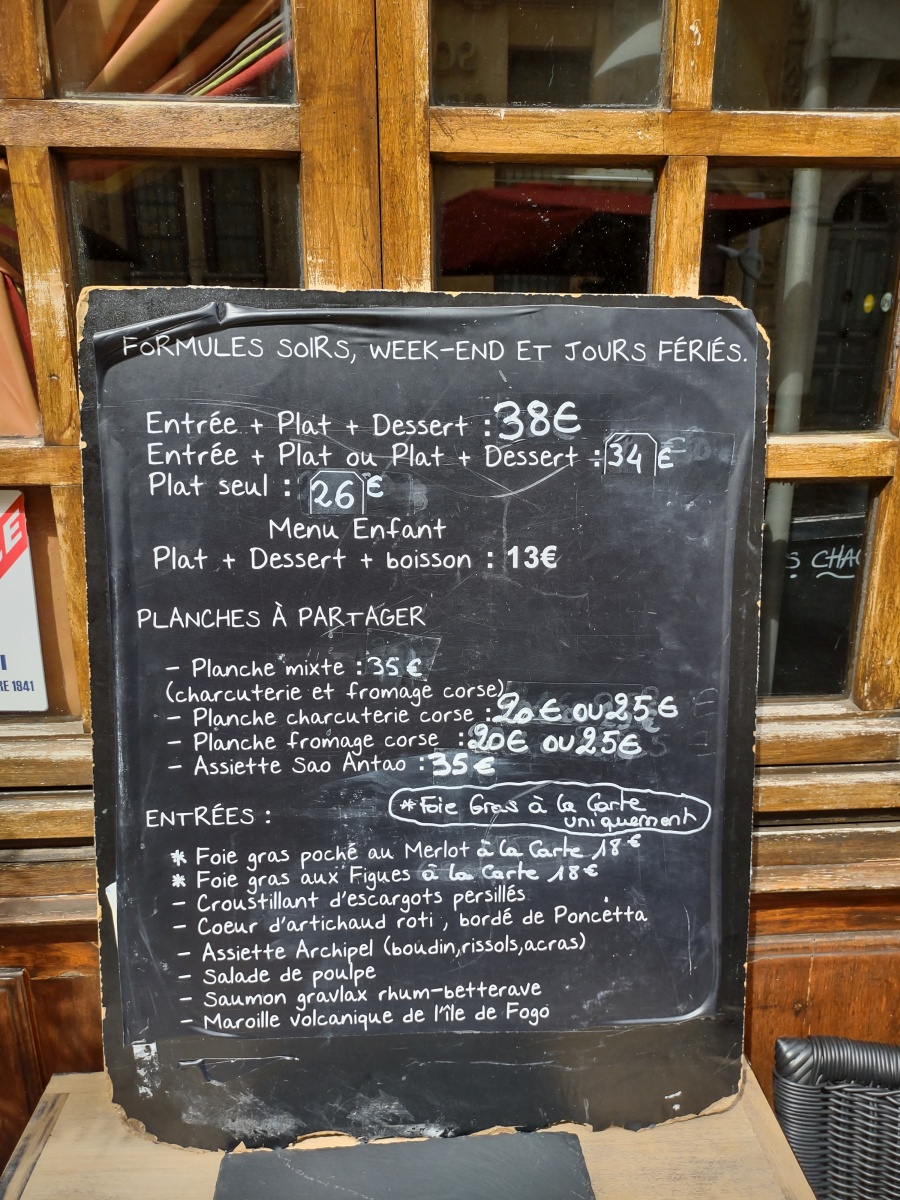 FORMULES SOIRS, WEEK-END ET JOURS FÉRIÉS.
Entrée + Plat + Dessert : 38€
Entrée + Plat ou Plat + Dessert : 34 €
Plat seul : 26 €
Menu Enfant
Plat + Dessert + boisson : 13€
PLANCHES À PARTAGER
- Planche mixte : 35 €
(charcuterie et fromage corse)
- Planche charcuterie corse : 20€ ou 25€
- Planche fromage corse : 20€ ou 25€
- Assiette Sao Antao : 35 €
*Foie Gras à la Carte
uniquement
ENTRÉES :
* Foie gras poché au Merlot à la Carte 18€
* Foie gras aux Figues à la Carte 18€
- Croustillant d'escargots persillés
- Coeur d'artichaud roti , bordé de Poncetta
- Assiette Archipel (boudin,rissols,acras)
- Salade de poulpe
- Saumon gravlax rhum-betterave
- Maroille volcanique de l'île de Fogo
RE 1941